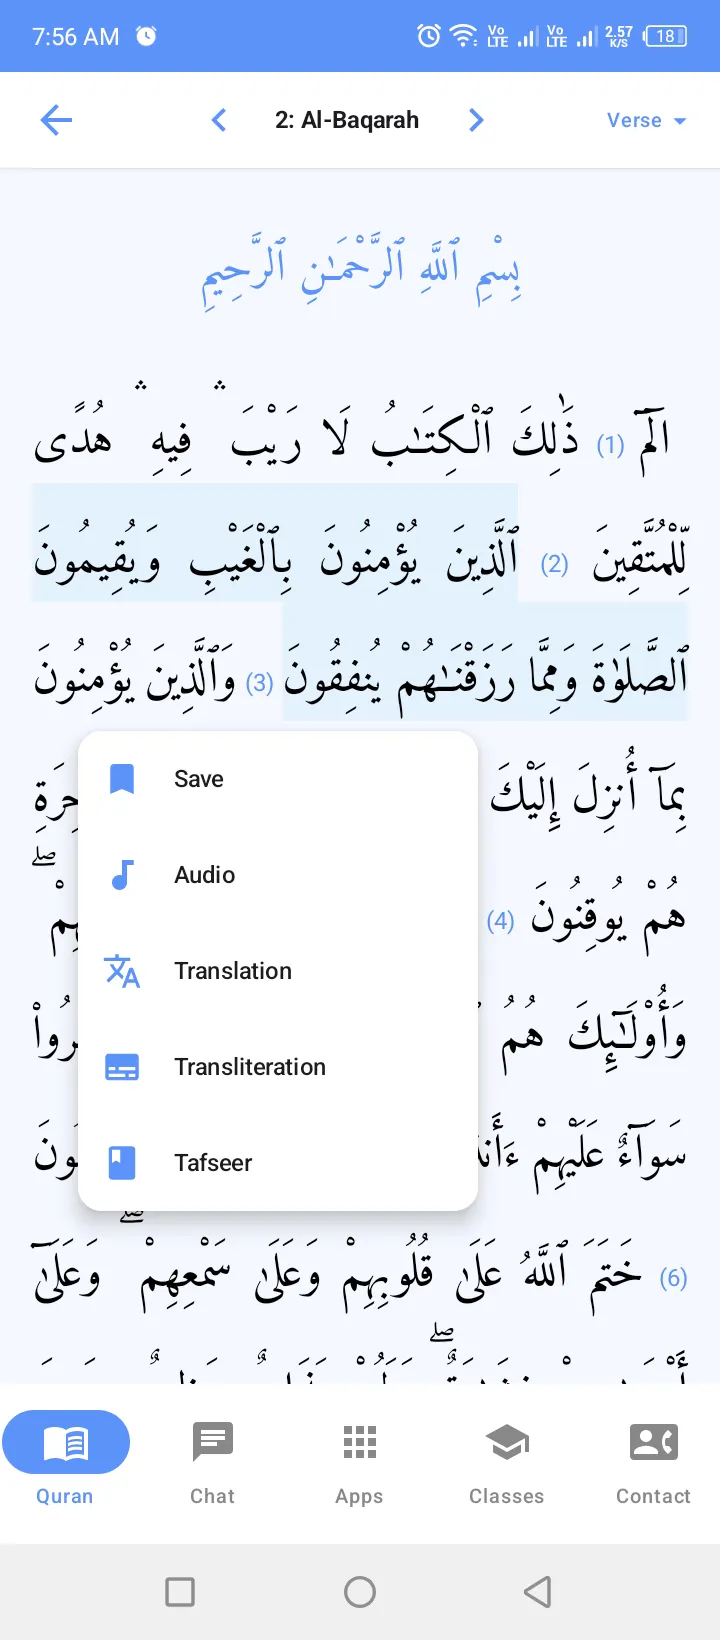 7:56 AM
Vo LTE Vo LTE 2.57 K/S 18
2: Al-Baqarah
Verse
بِسْمِ ٱللَّهِ ٱلرَّحْمَـٰنِ ٱلرَّحِيمِ
الٓمٓ (1) ذَٰلِكَ ٱلْكِتَـٰبُ لَا رَيْبَ ۛ فِيهِ ۛ هُدًى
لِّلْمُتَّقِينَ (2) ٱلَّذِينَ يُؤْمِنُونَ بِٱلْغَيْبِ وَيُقِيمُونَ
ٱلصَّلَوٰةَ وَمِمَّا رَزَقْنَـٰهُمْ يُنفِقُونَ (3) وَٱلَّذِينَ يُؤْمِنُونَ
بِمَآ أُنزِلَ إِلَيْكَ
هُمْ يُوقِنُونَ (4)
وَأُو۟لَـٰٓئِكَ هُمُ
سَوَآءٌ عَلَيْهِمْ
(6) خَتَمَ ٱللَّهُ عَلَىٰ قُلُوبِهِمْ وَعَلَىٰ سَمْعِهِمْ ۖ وَعَلَىٰٓ
Save
Audio
Translation
Transliteration
Tafseer
Quran
Chat
Apps
Classes
Contact